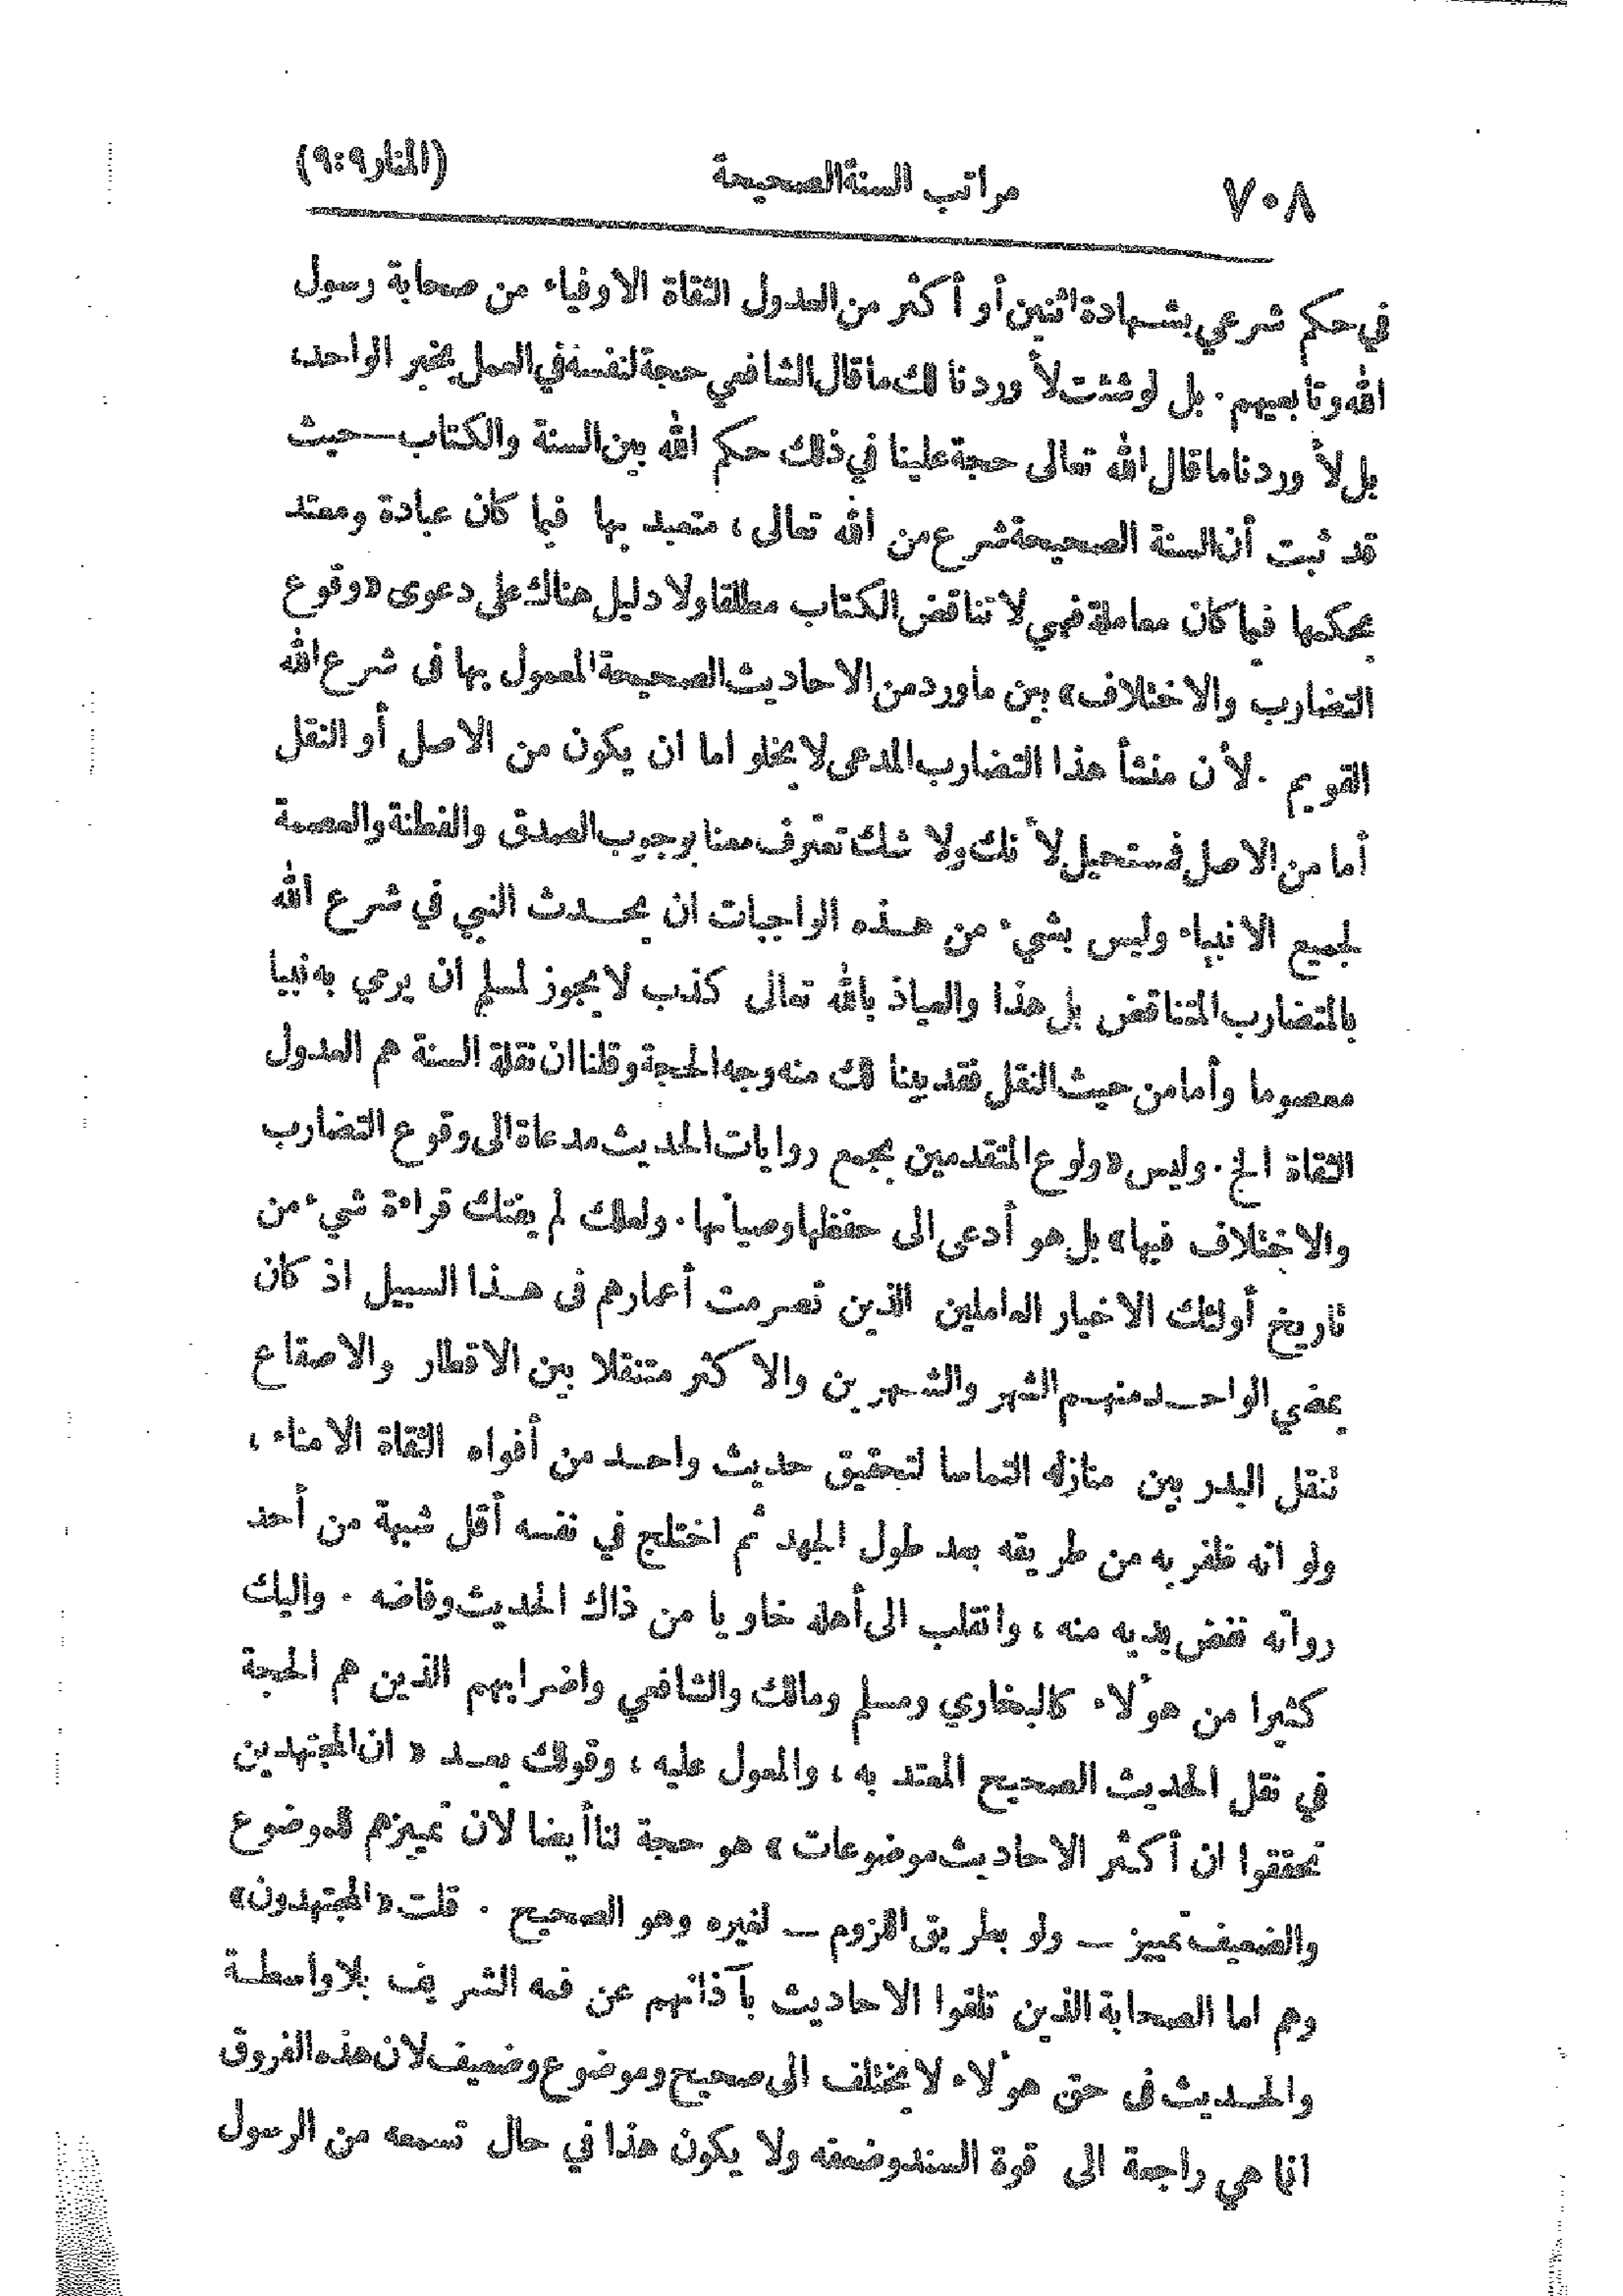 ٧٠٨ مراتب السنة الصحيحة (المنار ٩:٩)
في حكم شرعي بشهادة اثنين أو أكثر من العدول الثقاة الاوفياء من صحابة رسول
الله وتابعيهم . بل لو شئت لأوردنا لك ما قال الشافعي حجة لنفسه في العمل بخبر الواحد،
بل لأوردنا ما قال الله تعالى حجة علينا في ذلك حكم الله بين السنة والكتاب — حيث
قد ثبت أن السنة الصحيحة شرع من الله تعالى ، متعبد بها فيما كان عبادة ومعتد
بحكمها فيما كان معاملة فهي لا تناقض الكتاب مطلقا ولا دليل هناك على دعوى «وقوع
التضارب والاختلاف» بين ما ورد من الاحاديث الصحيحة المعمول بها فى شرع الله
القويم . لأن منشأ هذا التضارب المدعى لا يخلو اما ان يكون من الاصل أو النقل
أما من الاصل فمستحيل لأنك ولا شك تعترف معنا بوجوب الصدق والفطنة والعصمة
لجميع الانبياء وليس بشيء من هذه الواجبات ان يحدث النبي في شرع الله
بالمتضارب المتناقض بل هذا والعياذ بالله تعالى كذب لا يجوز لمسلم ان يرمي به نبيا
معصوما وأما من حيث النقل فقد بينا لك منه وجه الحجة وقلنا ان نقلة السنة هم العدول
الثقاة الخ . وليس «ولوع المتقدمين بجمع روايات الحديث مدعاة الى وقوع التضارب
والاختلاف فيها» بل هو أدعى الى حفظها وصيانتها . ولعلك لم يفتك قراءة شيء من
تاريخ أولئك الاخيار العاملين الذين تصرمت أعمارهم فى هذا السبيل اذ كان
يمضي الواحد منهم الشهر والشهرين والاكثر متنقلا بين الاقطار والاصقاع
تنقل البدر بين منازله التماسا لتحقيق حديث واحد من أفواه الثقاة الامناء ،
ولو انه ظفر به من طريقه بعد طول الجهد ثم اختلج في نفسه أقل شبهة من أحد
رواته نفض يديه منه ، وانقلب الى أهله خاويا من ذاك الحديث وفاضه . واليك
كثيرا من هؤلاء كالبخاري ومسلم ومالك والشافعي واضرابهم الذين هم الحجة
في نقل الحديث الصحيح المعتد به ، والمعول عليه ، وقولك بعد « ان المجتهدين
تحققوا ان أكثر الاحاديث موضوعات » هو حجة لنا أيضا لان تمييزهم للموضوع
والضعيف تمييز — ولو بطريق اللزوم — لغيره وهو الصحيح . قلت «المجتهدون»
وهم اما الصحابة الذين تلقوا الاحاديث بآذانهم عن فمه الشريف بلا واسطة
والحديث فى حق هؤلاء لا يختلف الى صحيح وموضوع وضعيف لان هذه الفروق
انما هي راجعة الى قوة السند وضعفه ولا يكون هذا في حال تسمعه من الرسول